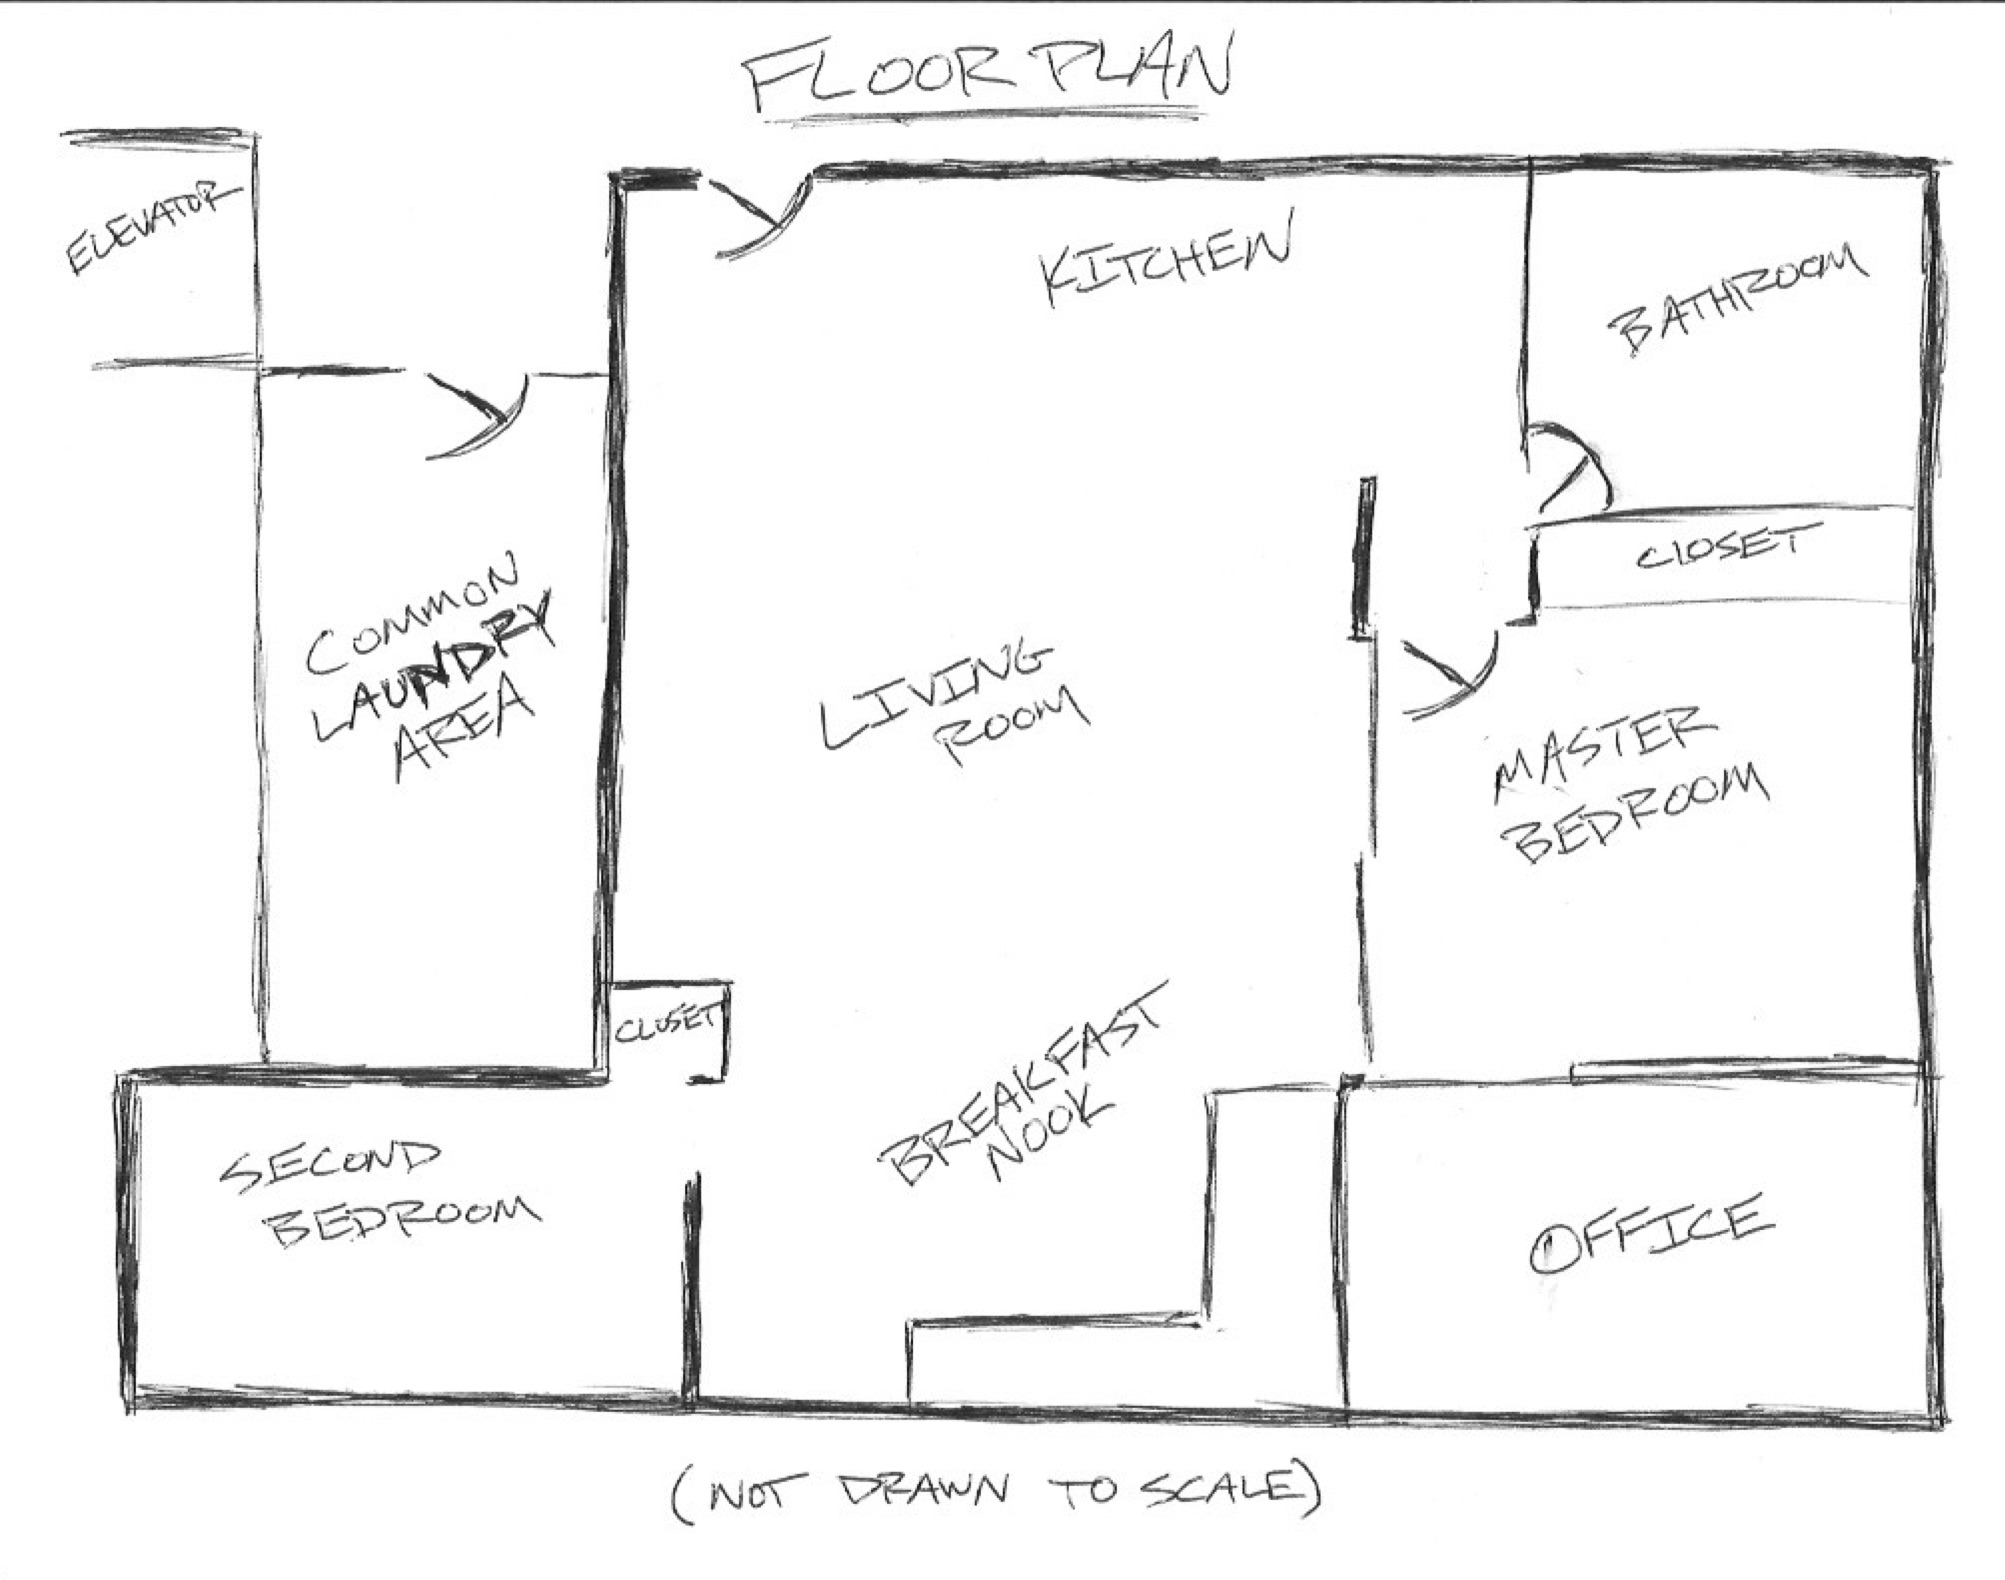 FLOOR PLAN
ELEVATOR
KITCHEN
BATHROOM
CLOSET
COMMON
LAUNDRY
AREA
LIVING
ROOM
MASTER
BEDROOM
CLOSET
BREAKFAST
NOOK
SECOND
BEDROOM
OFFICE
(NOT DRAWN TO SCALE)